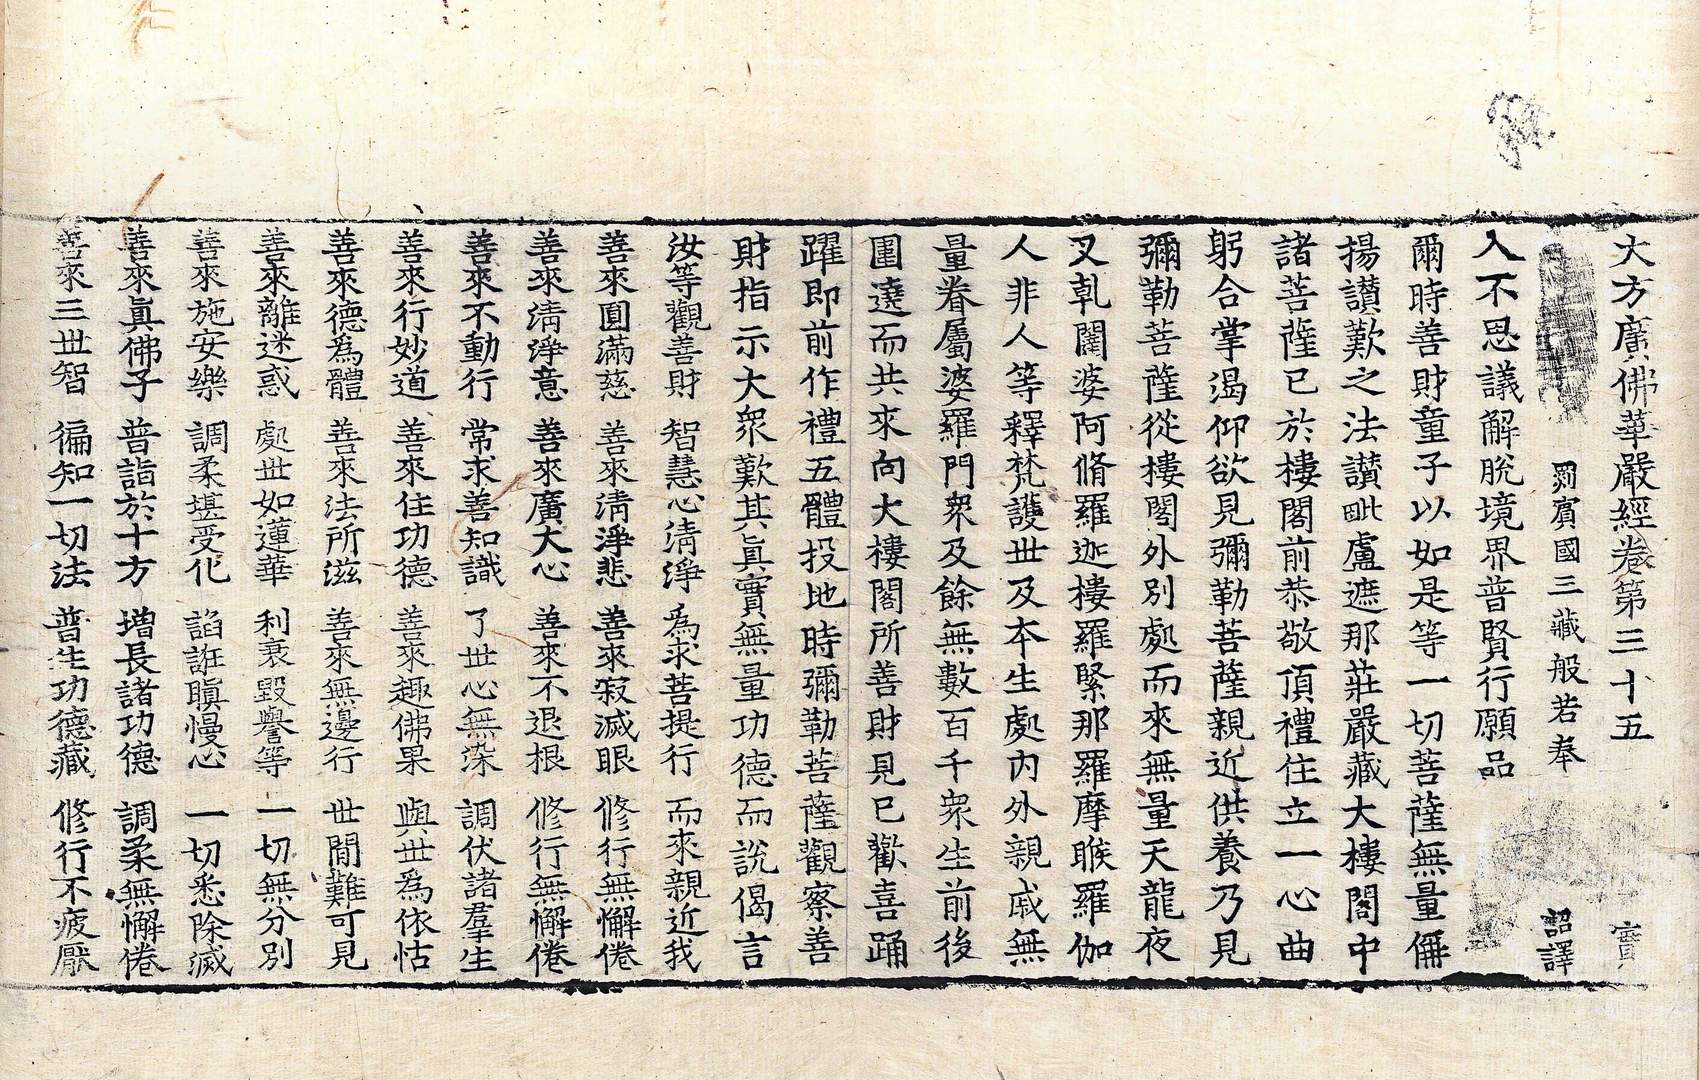 大方廣佛華嚴經卷第三十五 寶
罽賓國三藏般若奉 詔譯
入不思議解脫境界普賢行願品
爾時善財童子以如是等一切菩薩無量儞
揚讃歎之法讃毗盧遮那莊嚴藏大樓閣中
諸菩薩已於樓閣前恭敬頂禮住立一心曲
躬合掌渴仰欲見彌勒菩薩親近供養乃見
彌勒菩薩從樓閣外別處而來無量天龍夜
叉乹闥婆阿脩羅迦樓羅緊那羅摩睺羅伽
人非人等釋梵護世及本生處內外親戚無
量眷屬婆羅門衆及餘無數百千衆生前後
圍遶而共來向大樓閣所善財見已歡喜踊
躍即前作禮五體投地時彌勒菩薩觀察善
財指示大衆歎其眞實無量功德而說偈言
汝等觀善財 智慧心清淨 爲求菩提行 而來親近我
善來圓滿慈 善來清淨悲 善來寂滅眼 修行無懈倦
善來清淨意 善來廣大心 善來不退根 修行無懈倦
善來不動行 常求善知識 了世心無染 調伏諸羣生
善來行妙道 善來住功德 善來趣佛果 與世爲依怙
善來德爲體 善來法所滋 善來無邊行 世間難可見
善來離迷惑 處世如蓮華 利衰毀譽等 一切無分別
善來施安樂 調柔堪受化 諂誑瞋慢心 一切悉除滅
善來眞佛子 普詣於十方 增長諸功德 調柔無懈倦
善來三世智 徧知一切法 普生功德藏 修行不疲厭